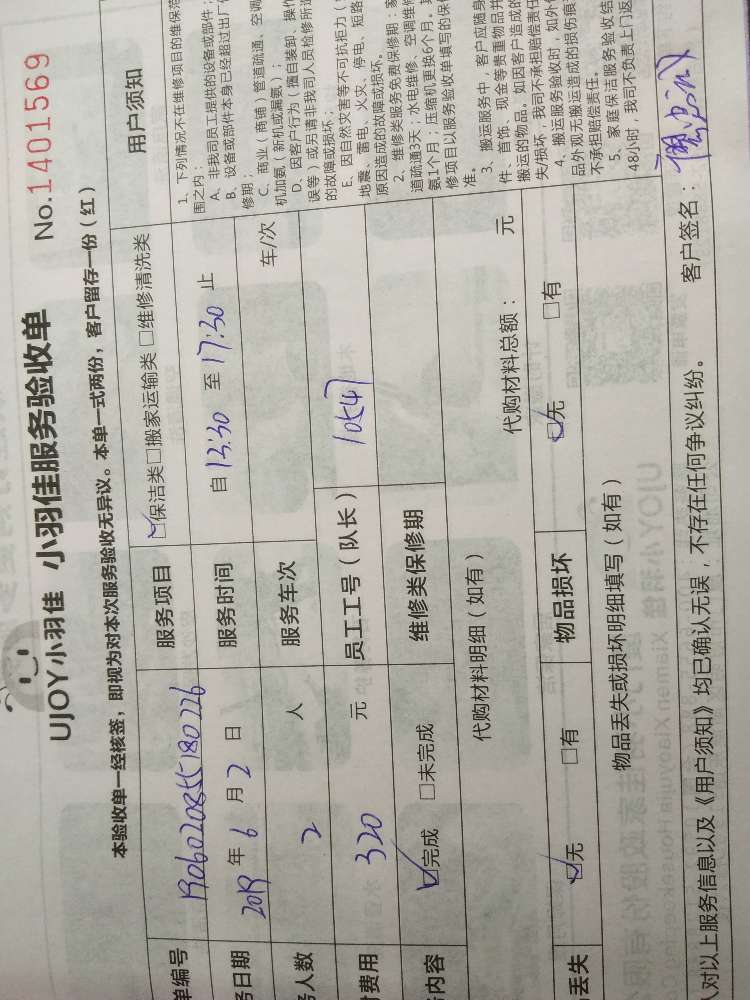 UJOY小羽佳 小羽佳服务验收单 No.1401569
本验收单一经核签，即视为对本次服务验收无异议。本单一式两份，客户留存一份（红）
单编号 1906020855180226 服务项目 ☑保洁类□搬家运输类 □维修清洗类
务日期 2019 年 6 月 2 日 服务时间 自 13:30 至 17:30 止
务人数 2 人 服务车次 车/次
付费用 320 元 员工工号（队长） 10547
务内容 ☑完成 □未完成 维修类保修期
代购材料明细（如有） 代购材料总额： 元
丢失 ☑无 □有 物品损坏 ☑无 □有
物品丢失或损坏明细填写（如有）
用户须知
1、下列情况不在维修项目的维保范
围之内：
A、非我司员工提供的设备或部件；
B、设备或部件本身已经超过出厂
修期；
C、商业（商铺）管道疏通、空调
机加氨（新机或漏氨）；
D、因客户行为（擅自装卸、操作
误等）或另请非我司人员检修所造
的故障或损坏；
E、因自然灾害等不可抗拒力（
地震、雷电、火灾、停电、短路
原因造成的故障或损坏。
2、维修类服务免费保修期：家
道疏通3天；水电维修、空调维修
氨1个月；压缩机更换6个月。其
修项目以服务验收单填写的保修
准。
3、搬运服务中，客户应随身
件、首饰、现金等贵重物品并
搬运的物品。如因客户造成的
失损坏，我司不承担赔偿责任
4、搬运服务验收时，如外包
品外观无搬运造成的损伤痕
不承担赔偿责任。
5、家庭保洁服务验收结
48小时，我司不负责上门返
人对以上服务信息以及《用户须知》均已确认无误，不存在任何争议纠纷。 客户签名：